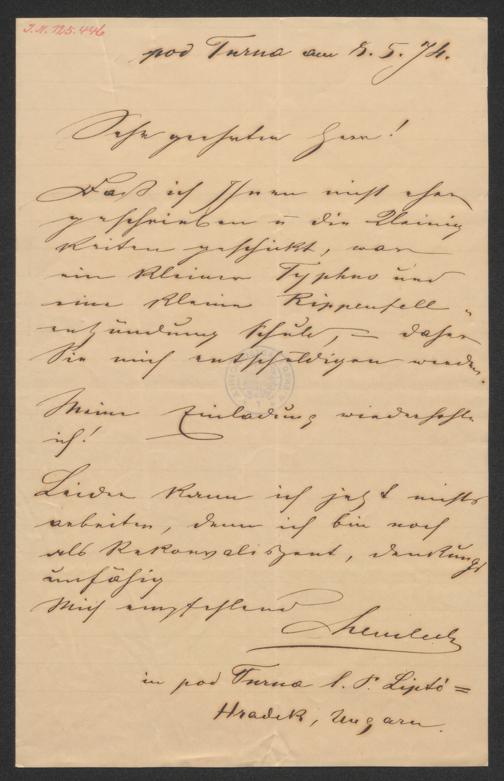 I.N. 125.446
pod Turna am 8. 5. 74.
Sehr geehrter Herr!
Daß ich Ihnen nicht eher
geschrieben u die Kleinig
keiten geschickt, war
ein kleiner Typhus und
eine kleine Rippenfell-
entzündung Schuld, – daher
Sie mich entschuldigen werden.
Meine Einladung wiederhohle
ich!
Leider kann ich jetzt nichts
arbeiten, denn ich bin noch
als Rekonvaliszent, denkungs
unfähig
Mich empfehlend
in pod Turna l. P. Liptó =
Hradek, Ungarn.